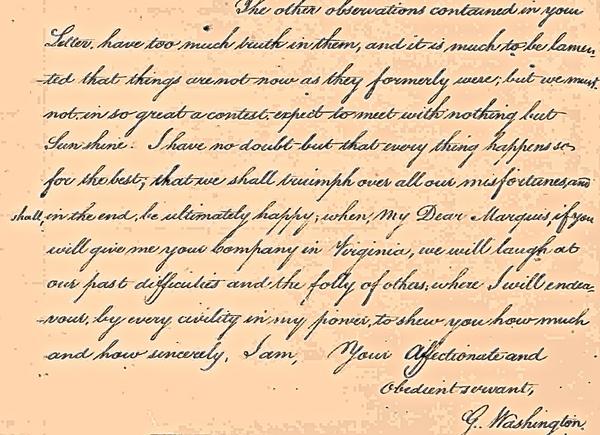 The other observations contained in your
Letter, have too much truth in them, and it is much to be lamen-
-ted that things are not now as they formerly were; but we must
not, in so great a contest, expect to meet with nothing but
Sun shine. I have no doubt but that every thing happens so
for the best; that we shall triumph over all our misfortunes, and
shall, in the end, be ultimately happy; when, My Dear Marquis, if you
will give me your Company in Virginia, we will laugh at
our past difficulties and the folly of others; where I will endea-
-vour, by every civility in my power, to shew you how much
and how sincerely, I am, Your Affectionate and
Obedient servant,
G. Washington.